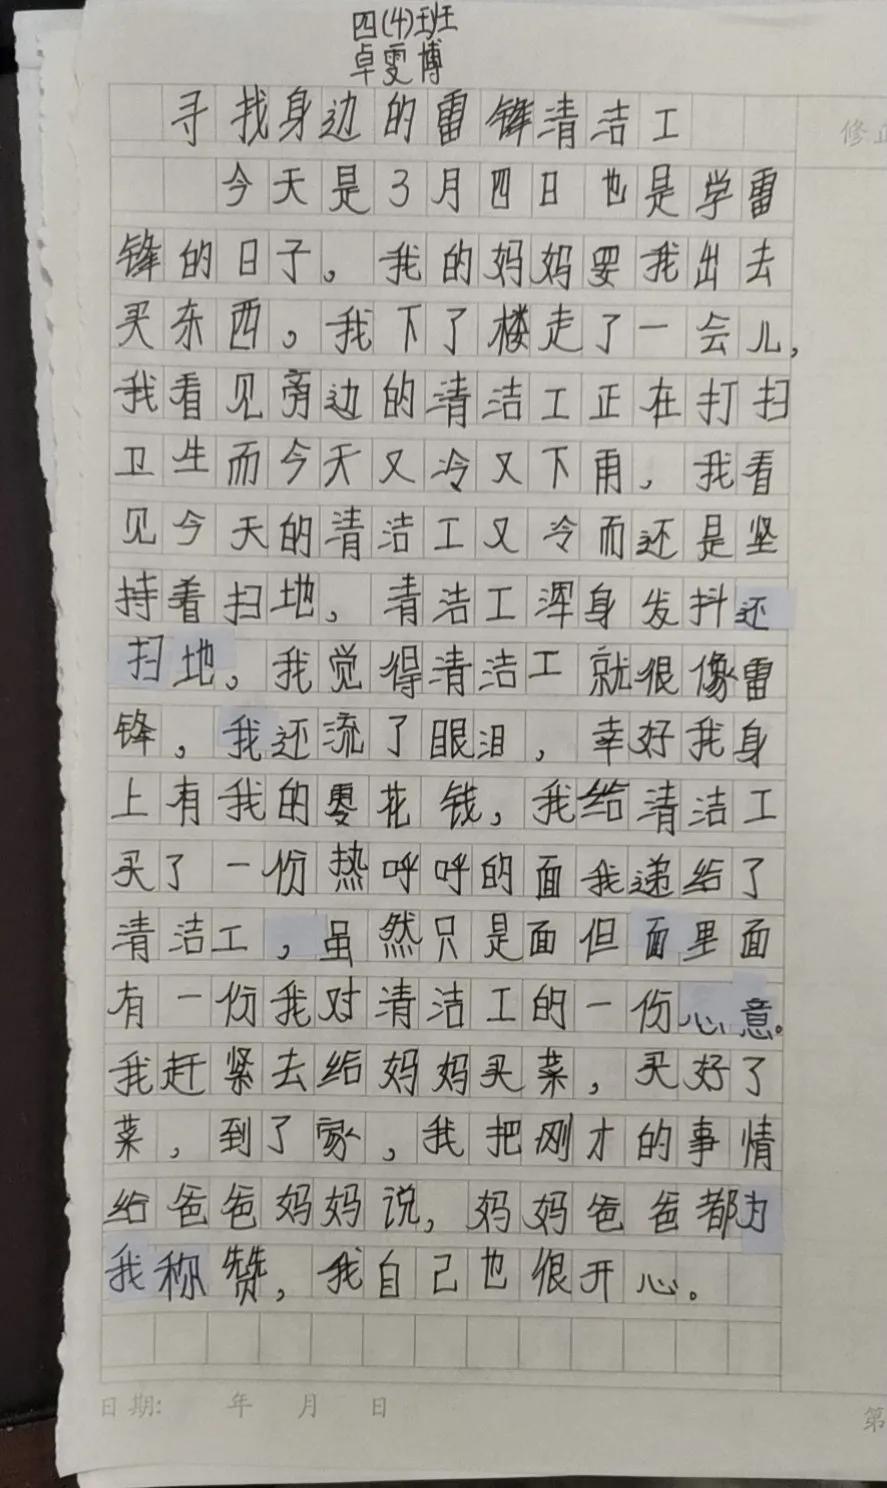 四(4)班
卓雯博
寻找身边的雷锋清洁工
今天是3月四日也是学雷
锋的日子。我的妈妈要我出去
买东西。我下了楼走了一会儿,
我看见旁边的清洁工正在打扫
卫生而今天又冷又下雨,我看
见今天的清洁工又冷而还是坚
持着扫地。清洁工浑身发抖还
扫地。我觉得清洁工就很像雷
锋,我还流了眼泪,幸好我身
上有我的零花钱,我给清洁工
买了一份热呼呼的面我递给了
清洁工,虽然只是面但面里面
有一份我对清洁工的一份心意。
我赶紧去给妈妈买菜,买好了
菜,到了家,我把刚才的事情
给爸爸妈妈说,妈妈爸爸都为
我称赞,我自己也很开心。
日期: 年 月 日
第
修正